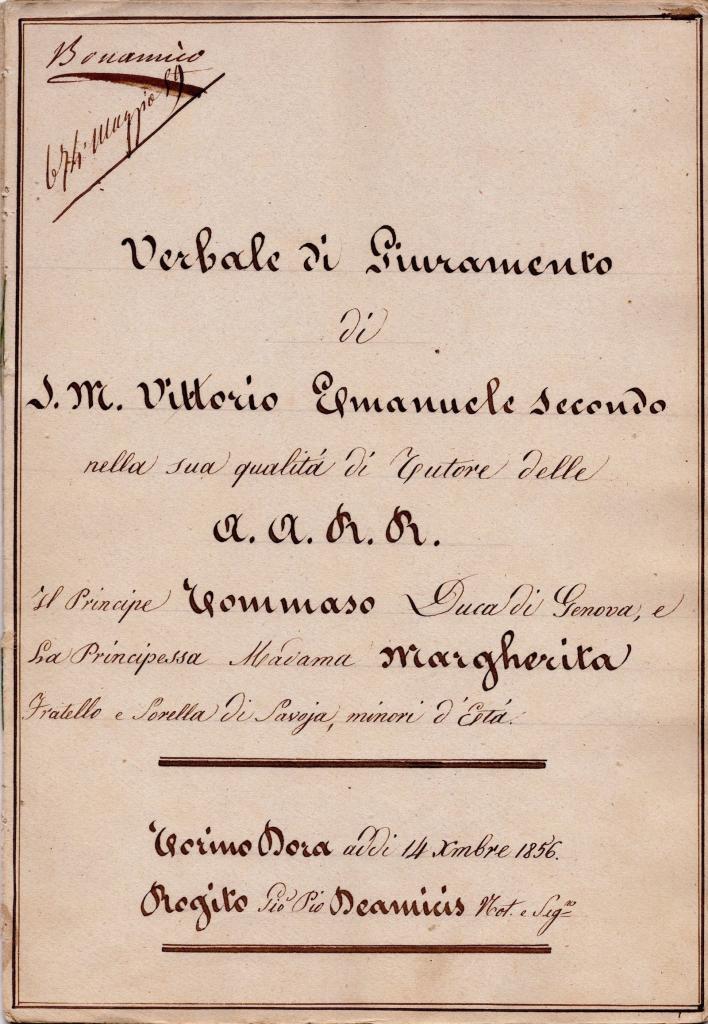 Bonamico
674 Maggio 89
Verbale di Giuramento
di
S. M. Vittorio Emanuele secondo
nella sua qualitá di Tutore delle
A. A. R. R.
Il Principe Tommaso Duca di Genova, e
La Principessa Madama Margherita
Fratello e Sorella di Savoja, minori d'Etá.
Torino Dora addi 14 Xmbre 1856.
Rogito Gio. Pio Deamicis Not. e Seg.ro